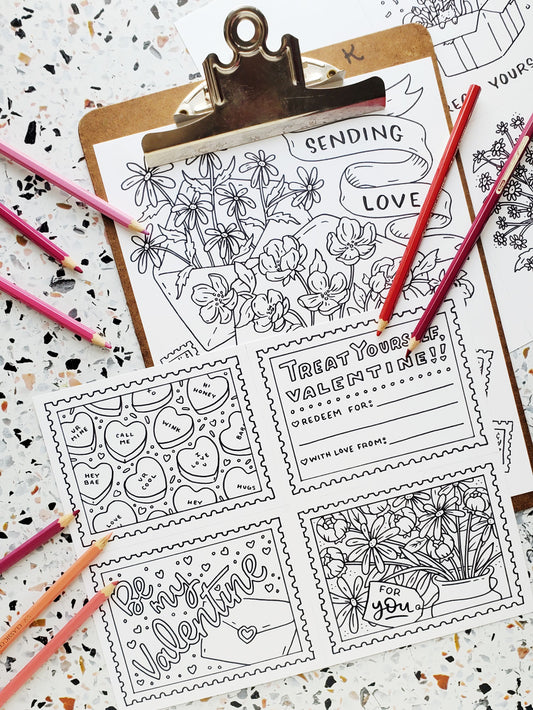 K
SENDING
LOVE
YOURS
HI
HONEY
UR
MINE
CALL
ME
WINK
BAE
HEY
BAE
UR
COOL
HUGS
LOVE
HEY
TREAT YOURSELF,
VALENTINE!!
REDEEM FOR:
WITH LOVE FROM:
Be
my
Valentine
FOR
you